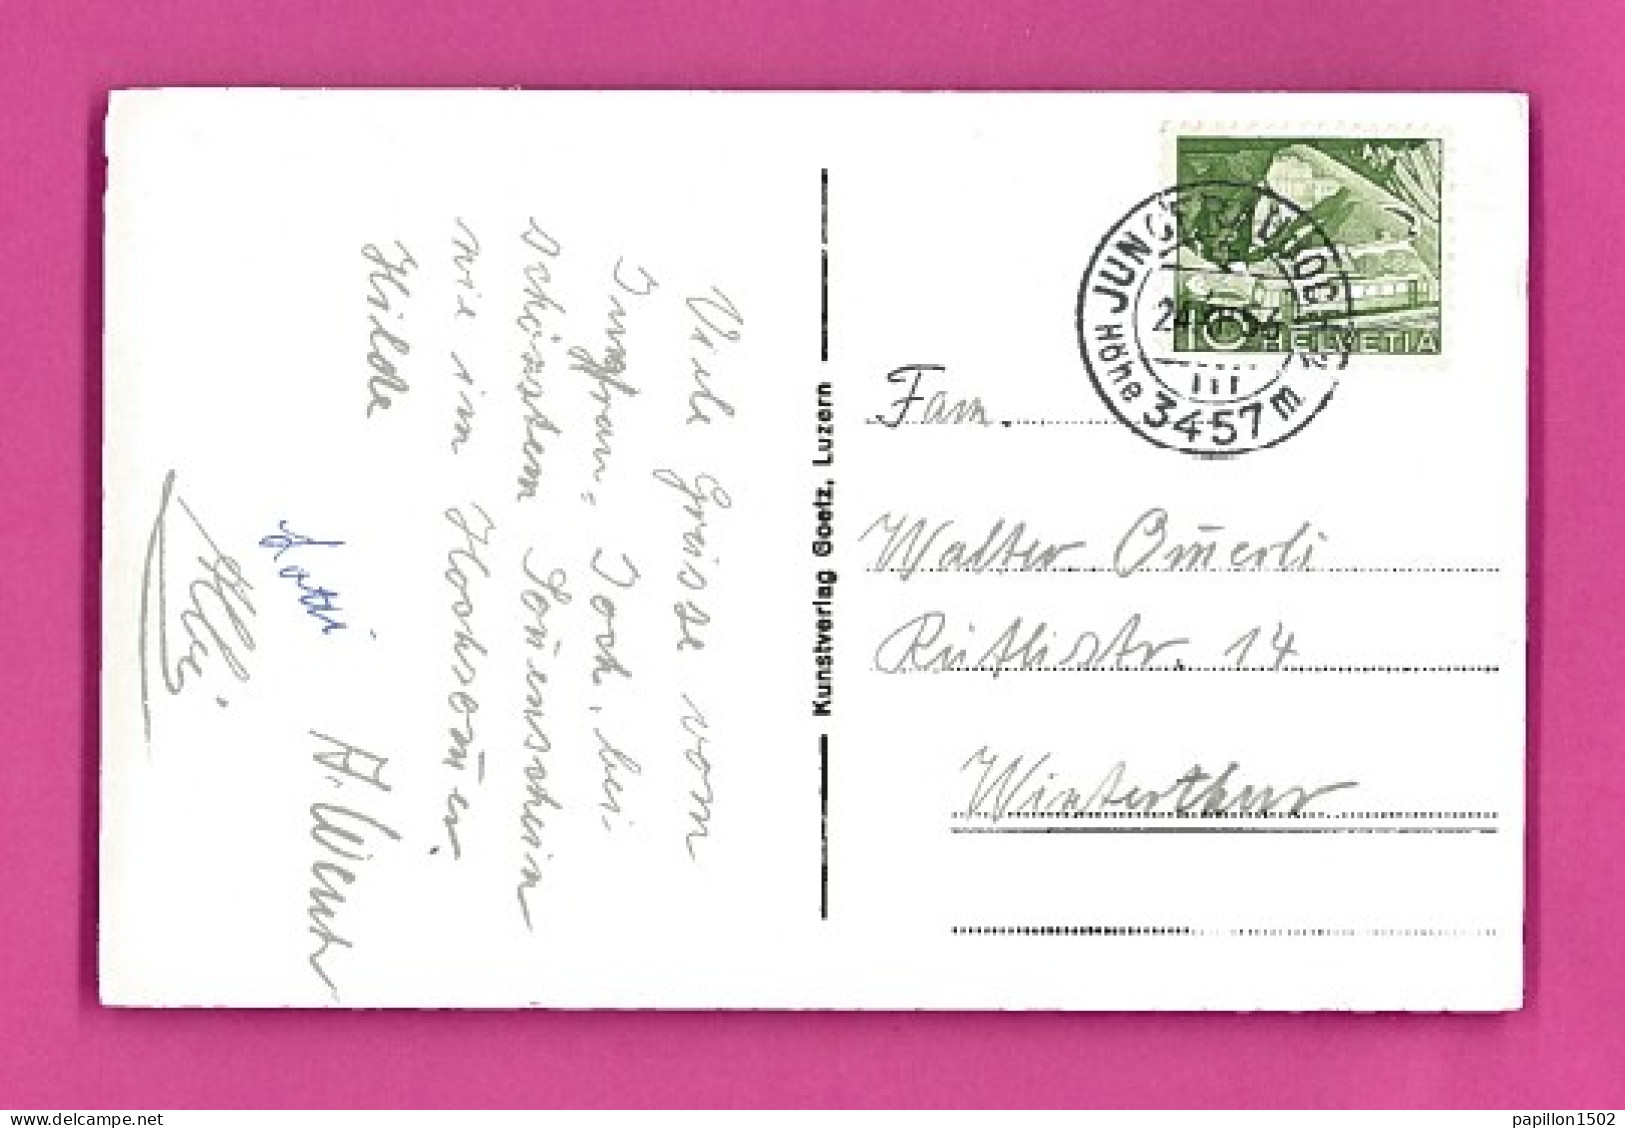 Viele Grüsse vom
Jungfrau-Joch, bei
schönstem Son̄enschein
wie im Hochsom̄er
Hilde
Kunstverlag Goetz, Luzern
JUNGFRAUJOCH
Höhe 3457 m
10 HELVETIA
Fam.
Walter Om̄erli
Rütlistr. 14
Winterthur
papillon1502